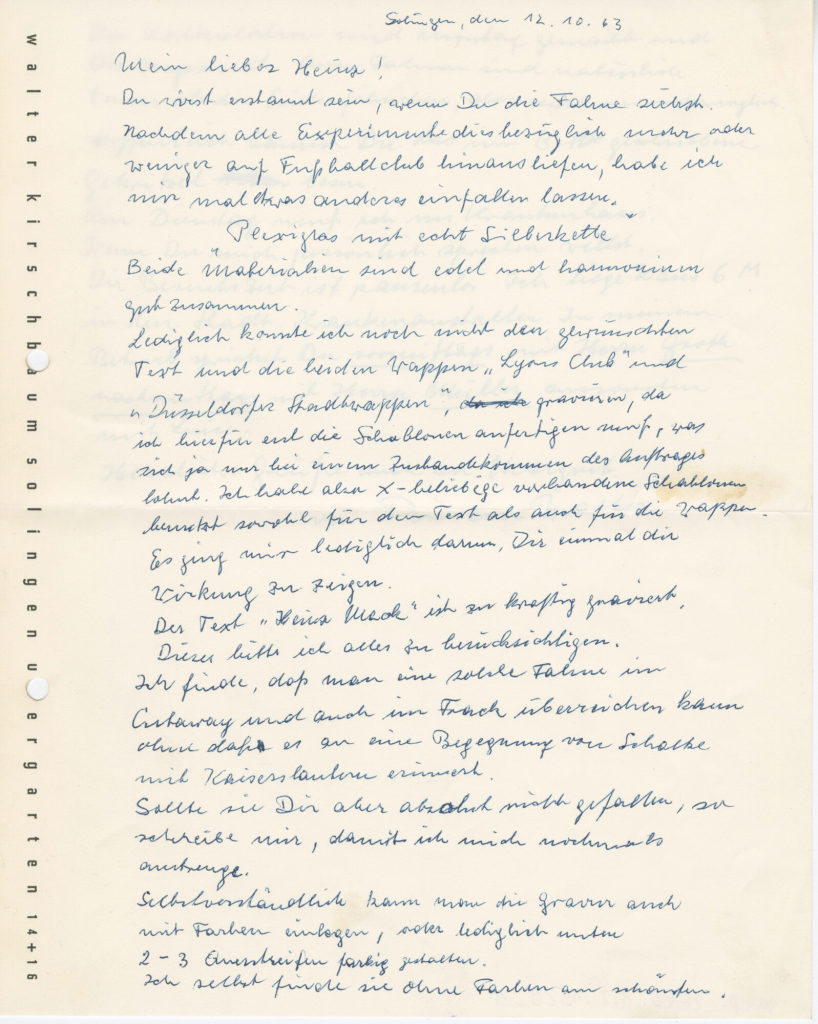 walter kirschbaum solingen u ergarten 14+16
Solingen, den 12.10.63
Mein lieber Heinz!
Du wirst erstaunt sein, wenn Du die Fahne siehst.
Nachdem alle Experimente diesbezüglich mehr oder
weniger auf Fußballclub hinausliefen, habe ich
mir mal etwas anderes einfallen lassen.
"Plexiglas mit echt Silberkette"
Beide Materialien sind edel und harmonieren
gut zusammen.
Lediglich konnte ich noch nicht den gewünschten
Text und die beiden Wappen „Lyons Club" und
„Düsseldorfer Stadtwappen", da ich gravieren, da
ich hierfür erst die Schablonen anfertigen muß, was
sich ja nur bei einem Zustandekommen des Auftrages
lohnt. Ich habe also X-beliebige vorhandene Schablonen
benutzt sowohl für den Text als auch für die Wappen.
Es ging mir lediglich darum, Dir einmal die
Wirkung zu zeigen.
Der Text „Heinz Mack" ist zu kräftig graviert.
Dieses bitte ich alles zu berücksichtigen.
Ich finde, daß man eine solche Fahne im
Cutaway und auch im Frack überreichen kann
ohne daß es an eine Begegnung von Schalke
mit Kaiserslautern erinnert.
Sollte sie Dir aber absolut nicht gefallen, so
schreibe mir, damit ich mich nochmals
anstrenge.
Selbstverständlich kann man die Gravur auch
mit Farben einlegen, oder lediglich unten
2-3 Querstreifen farbig gestalten.
Ich selbst finde sie ohne Farben am schönsten.